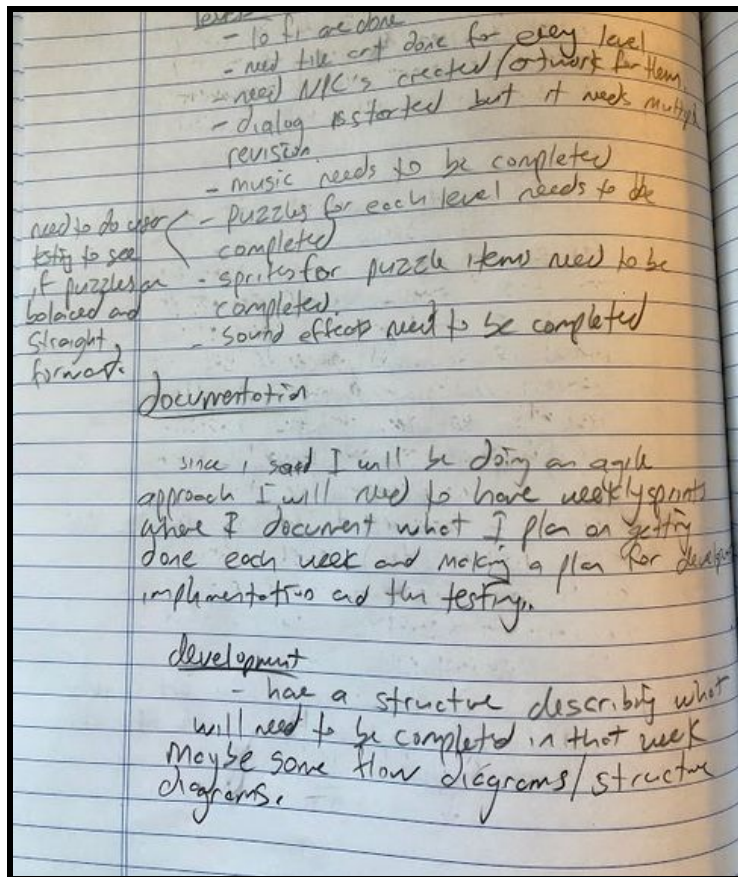 levels
- lo fi are done
- need tile art done for every level
- need NPC's created/artwork for them.
- dialog is started but it needs multiple
revision.
- music needs to be completed
- puzzles for each level needs to be
completed
- sprites for puzzle items need to be
completed.
- sound effects need to be completed
need to do user
testing to see
if puzzles are
balaced and
straight
forward.
documentation
since i said I will be doing an agile
approach I will need to have weekly sprints
where I document what I plan on getting
done each week and making a plan for
implmentation and then testing..
development
- have a structure describing what
will need to be completed in that week
Maybe some flow diagrams/structure
diagrams.